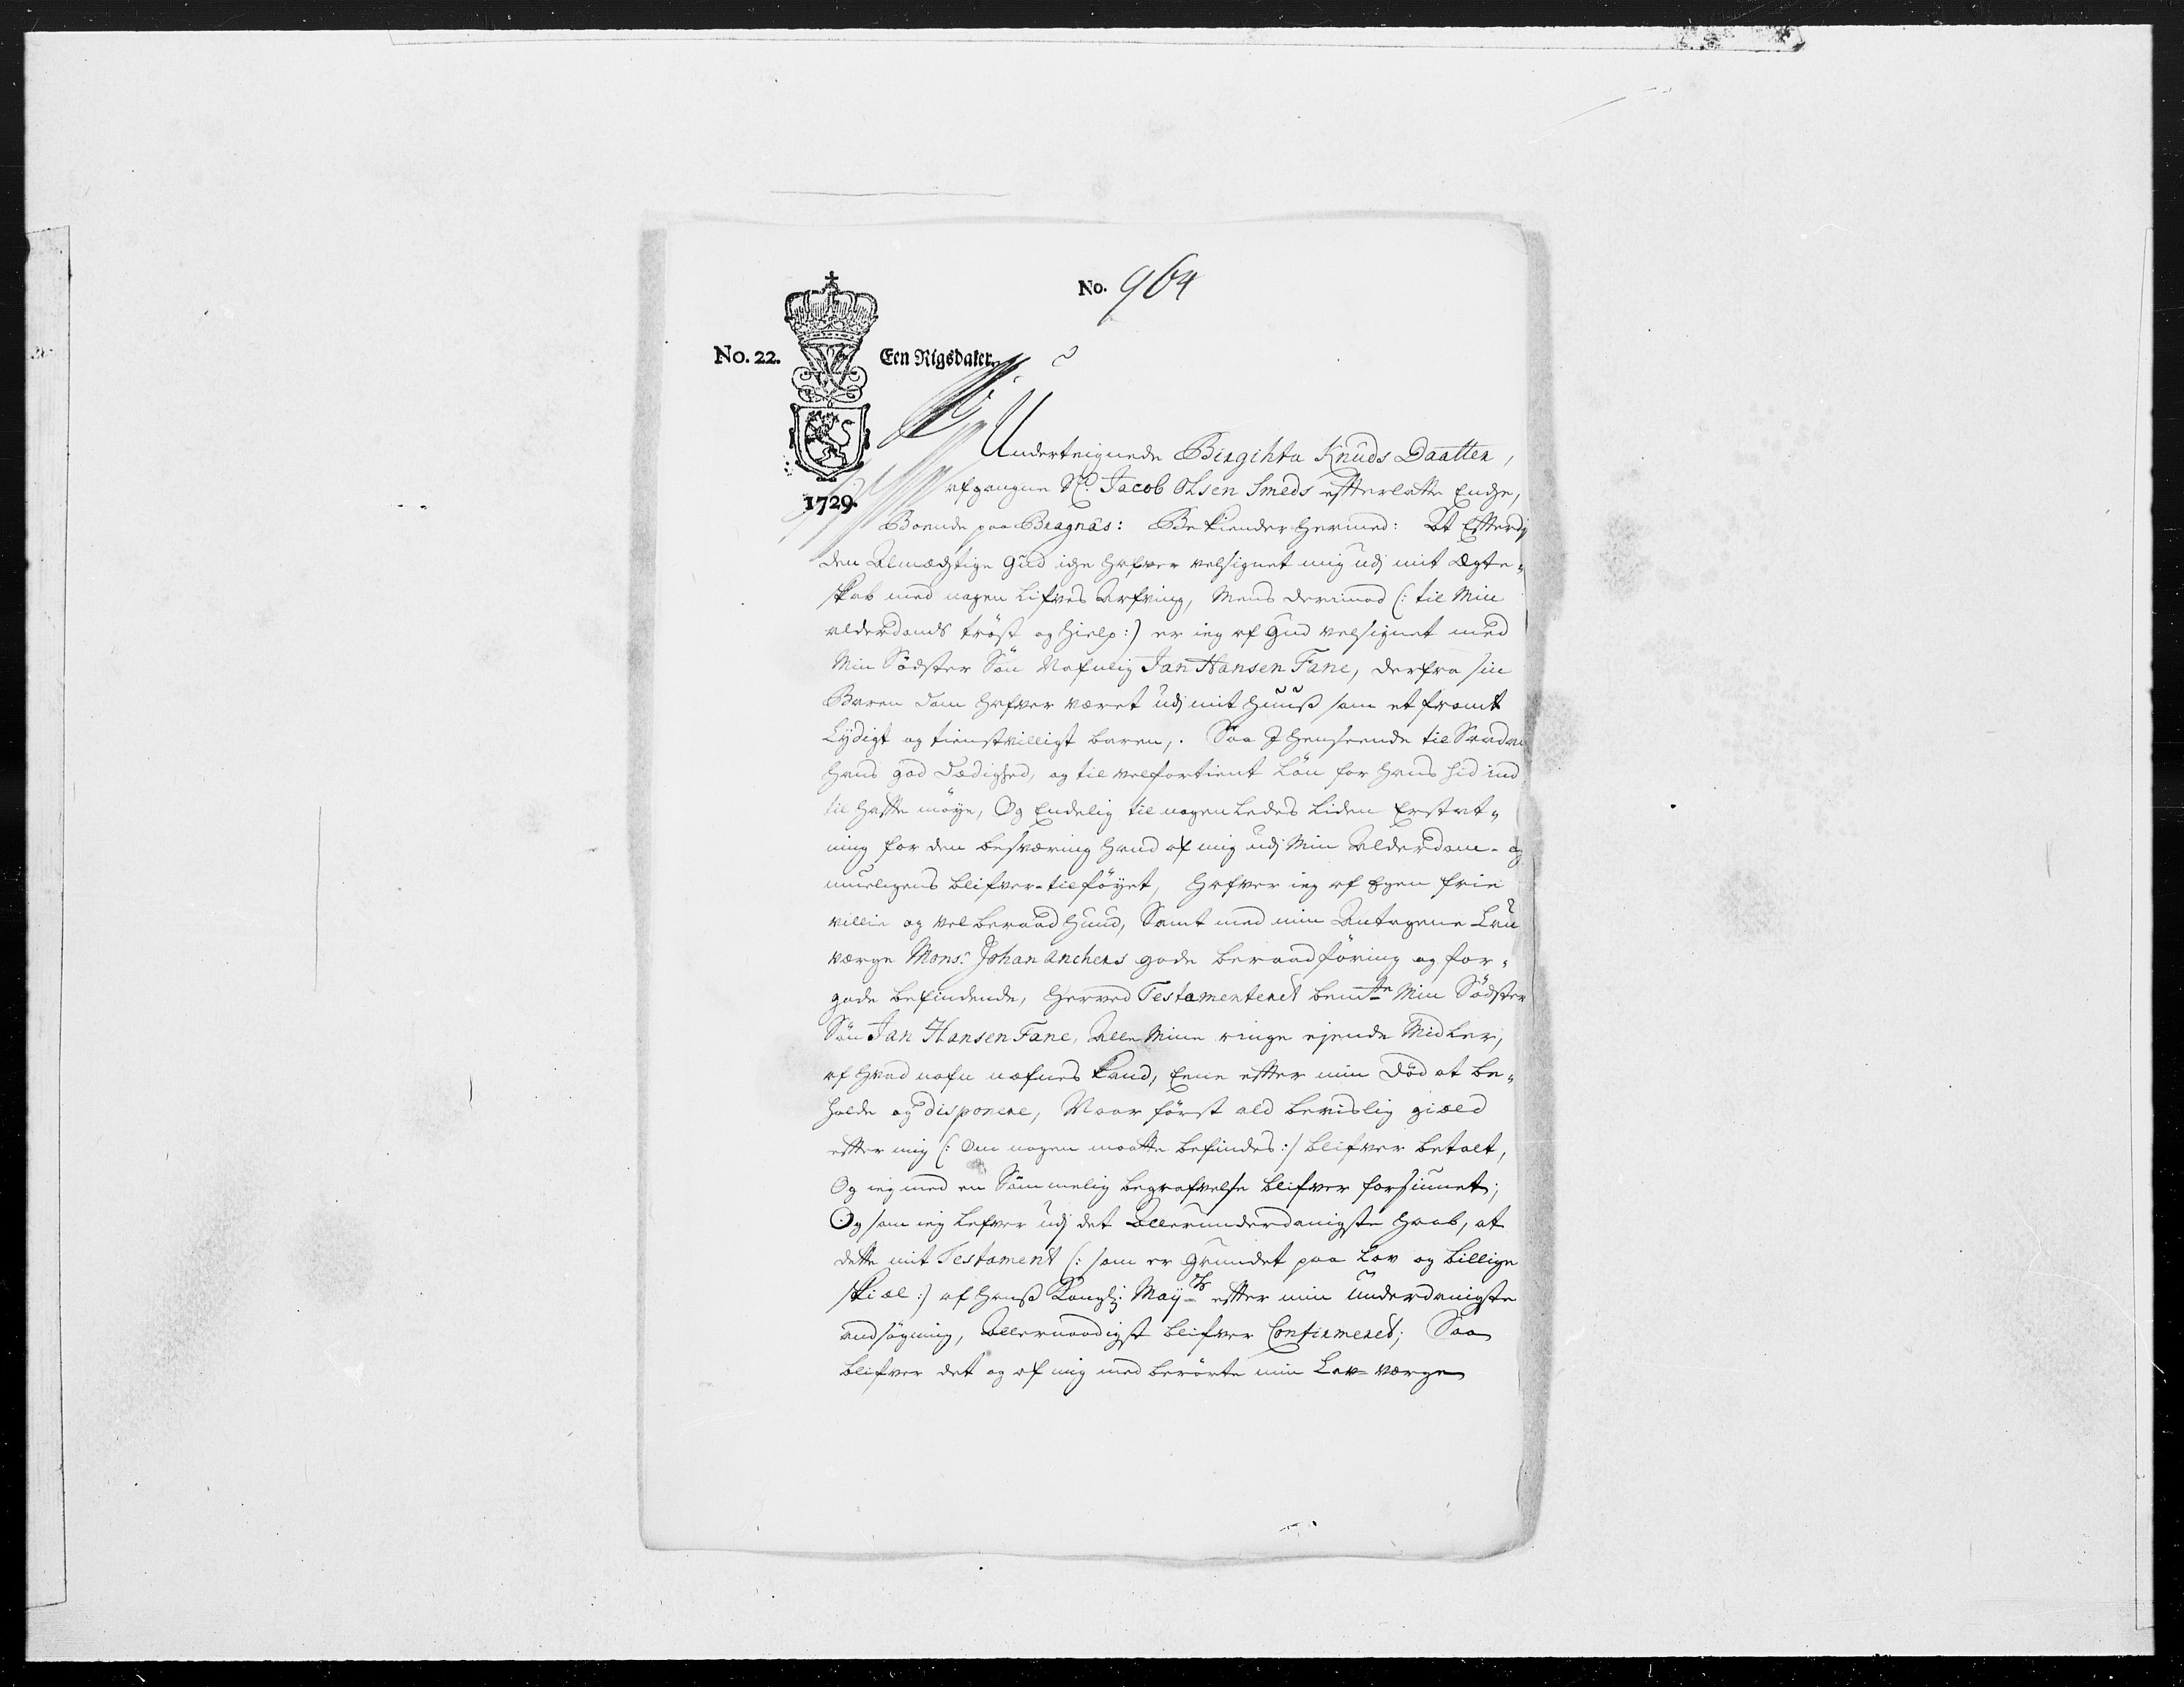 No. 964
No. 22. Een Rigsdaler.
1729.
Underteignede Birgihta Knuds Daatter,
afgangne Sl. Jacob Olsen Smeds effterlatte Enche,
Boende paa Bragnæs: Bekiender hermed: At Efftterdj
den Almægtige Gud iche hafver velsignet mig udj mit Ægte-
skab med nogen Lifves Arfving, Mens derimod (: til Min
alderdoms tröst og hielp :) er ieg af Gud velsignet med
Min Södster Sön Nafnlig Jan Hansen Fane, derfra sin
Baren dom hafver været udj mit Huuß som et fromt
Lÿdigt og tienstvilligt baren,. Saa J Henseende til Saadan
hans god Dædighed, og til velfortient Lön for hans hid ind
til haffte möye, Og Endelig til nogenledes liden Erstat-
ning for den besværing hand af mig udj Min Alderdom- og
mueligens blifver-tilföyet, Hafver ieg af Egen frie
villie og velberaad Huud, Samt med min Antagene Lau
værge Mons: Johan Anchers gode beraadföring og for-
gode befindende, Herved Testamenteret bemte Min Södster
Sön Jan Hansen Fane, Alle Mine ringe ejende Midler,
af hvad nafn næfnes kand, Eene effter min Död at be-
holde og disponere, Naar först ald bevislig giæld
effter mig (: Om nogen maatte befindes :) blifver betalt,
Og ieg med en Sömmelig begrafvelse blifver forsiunet;
Og som ieg lefver udj det Allerunderdanigste haab, at
dette mit Testament (: som er grundet paa Lov og billige
skiæl :) af Hans Kongl: Maÿts effter min underdanigste
andsögning, Allernaadigst blifver Confirmeret; Saa
blifver det og af mig med berörte min Lav-værge